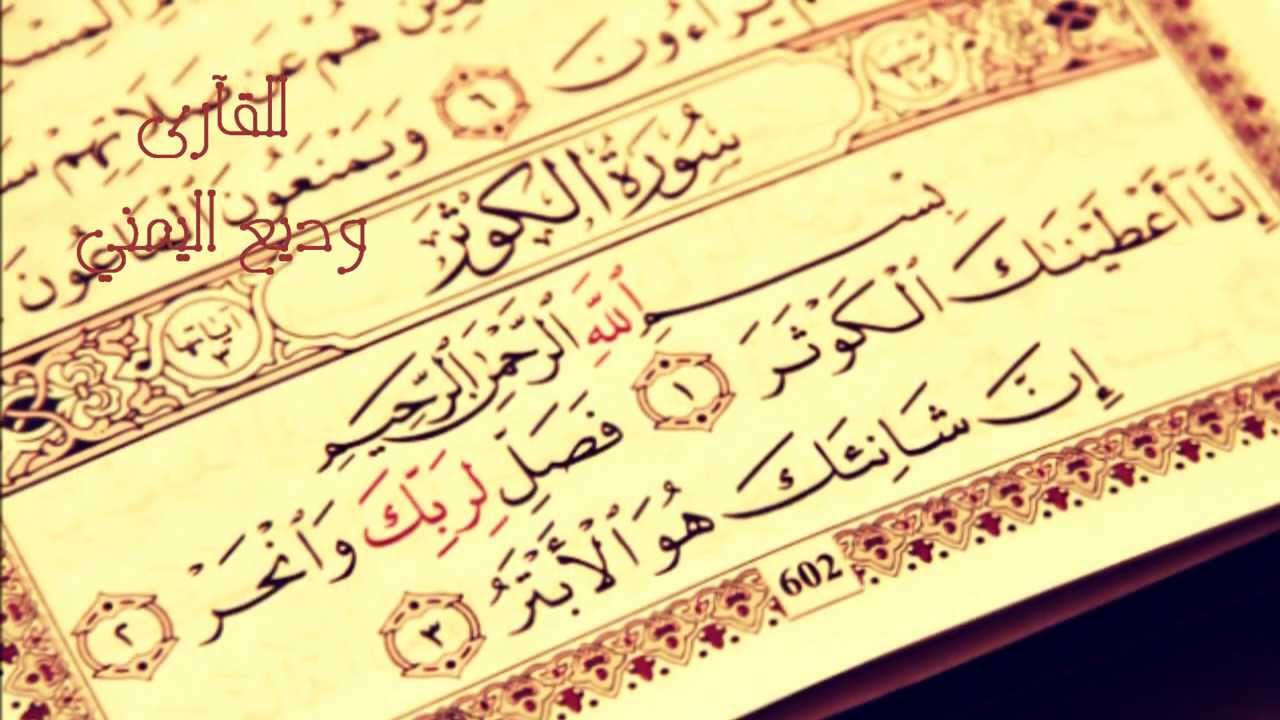 يُرَآءُونَ ٦ وَيَمْنَعُونَ ٱلْمَاعُونَ
للقآرئ
وديع اليمني
سُورَةُ الْكَوْثَرِ
آيَاتُهَا ٣
بِسْمِ ٱللَّهِ ٱلرَّحْمَٰنِ ٱلرَّحِيمِ
إِنَّآ أَعْطَيْنَٰكَ ٱلْكَوْثَرَ ١ فَصَلِّ لِرَبِّكَ وَٱنْحَرْ ٢
إِنَّ شَانِئَكَ هُوَ ٱلْأَبْتَرُ ٣
602